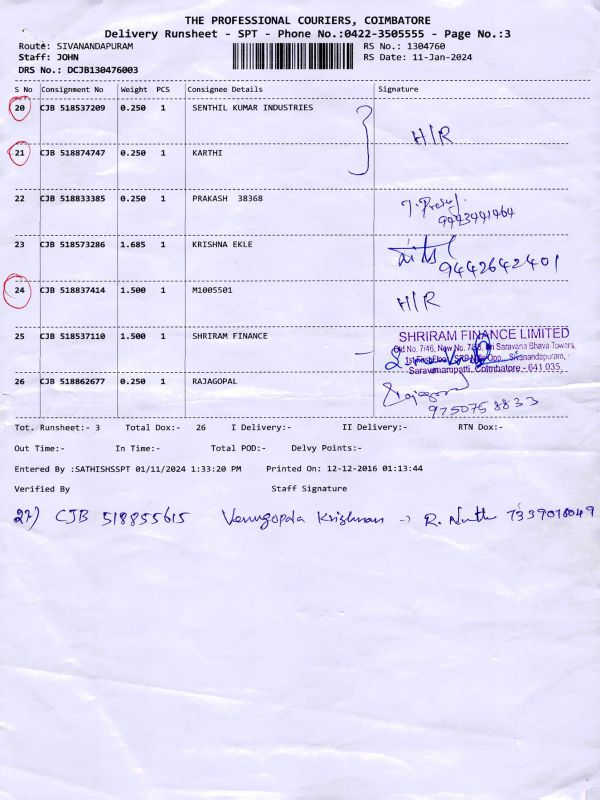 THE PROFESSIONAL COURIERS, COIMBATORE
Delivery Runsheet - SPT - Phone No.:0422-3505555 - Page No.:3
Route: SIVANANDAPURAM RS No.: 1304760
Staff: JOHN RS Date: 11-Jan-2024
DRS No.: DCJB130476003
S No Consignment No Weight PCS Consignee Details Signature
20 CJB 518537209 0.250 1 SENTHIL KUMAR INDUSTRIES
H/R
21 CJB 518874747 0.250 1 KARTHI
22 CJB 518833385 0.250 1 PRAKASH 38368
9443441464
23 CJB 518573286 1.685 1 KRISHNA EKLE
9442642401
24 CJB 518837414 1.500 1 M1005501 H/R
25 CJB 518537110 1.500 1 SHRIRAM FINANCE SHRIRAM FINANCE LIMITED
Old No. 7/46, New No. Saravana Bhava Towers,
1st Floor, Opp. Sivanandapuram,
Saravanampatti, Coimbatore - 641 035.
26 CJB 518862677 0.250 1 RAJAGOPAL Rajagopal
9750758833
Tot. Runsheet:- 3 Total Dox:- 26 I Delivery:- II Delivery:- RTN Dox:-
Out Time:- In Time:- Total POD:- Delvy Points:-
Entered By :SATHISHSSPT 01/11/2024 1:33:20 PM Printed On: 12-12-2016 01:13:44
Verified By Staff Signature
27) CJB 518855615 Venugopala Krishnan → R. 7339018049